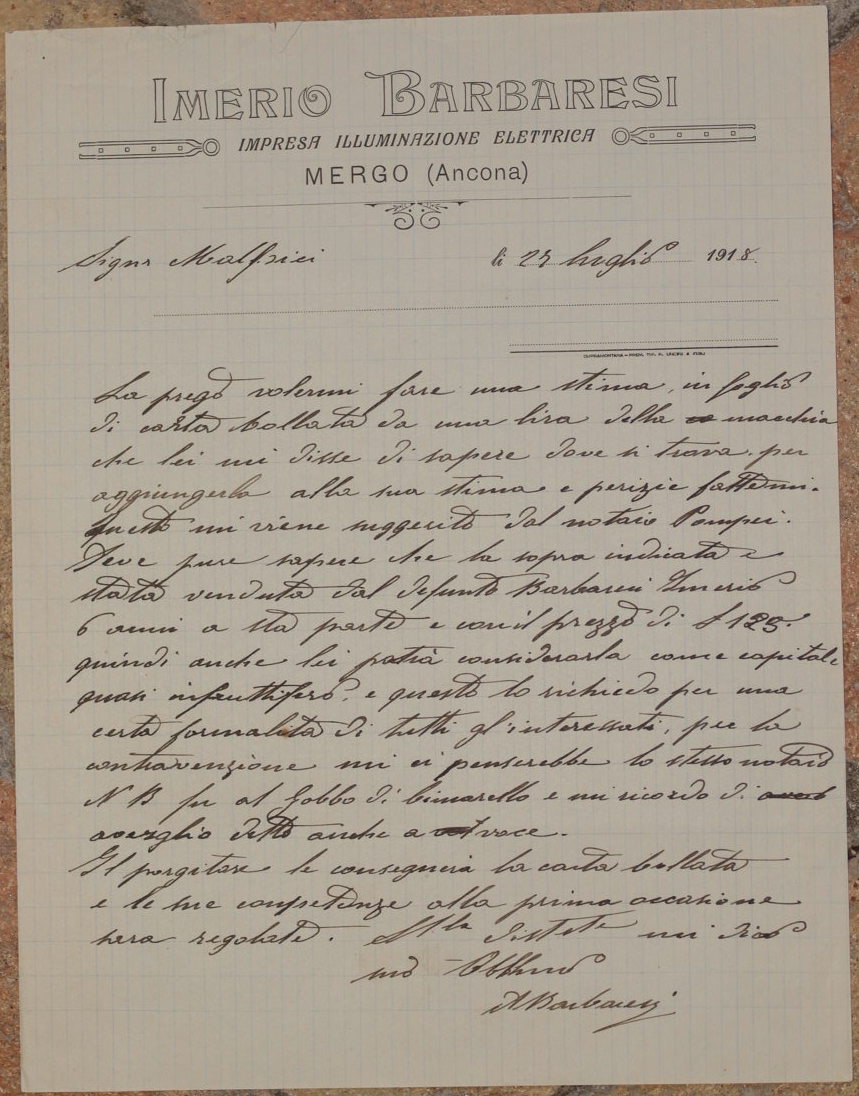 IMERIO BARBARESI
IMPRESA ILLUMINAZIONE ELETTRICA
MERGO (Ancona)
Signr Malfrici
li 25 luglio 1918.
La prego volermi fare una stima, in foglio
di carta bollata da una lira della macchia
che lei mi disse di sapere dove si trova. per
aggiungerla alla sua stima e perizie fattemi.
Questo mi viene suggerito dal notaio Pompei.
Deve pure sapere che la sopra indicata e
stata venduta dal defunto Barbaresi Imerio
6 anni a sta parte e con il prezzo di £ 125.
quindi anche lei potrà considerarla come capitale
quasi infruttifero. e questo lo richiedo per una
certa formalità di tutti gl'interessati, per la
contravenzione mi ci penserebbe lo stesso notaio
N B fu al Gobbo di e mi ricordo di
averglio detto anche a voce.
Il porgitore le consegnerà la carta bollata
e le sue competenze alla prima occasione
sera regolate. Mlla distete mi dico
suo Obblmo
A Barbaresi